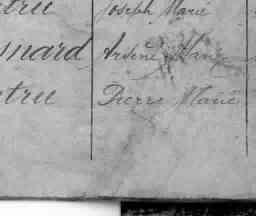 tru Joseph Marie
snard Arsène
tru Pierre Marie